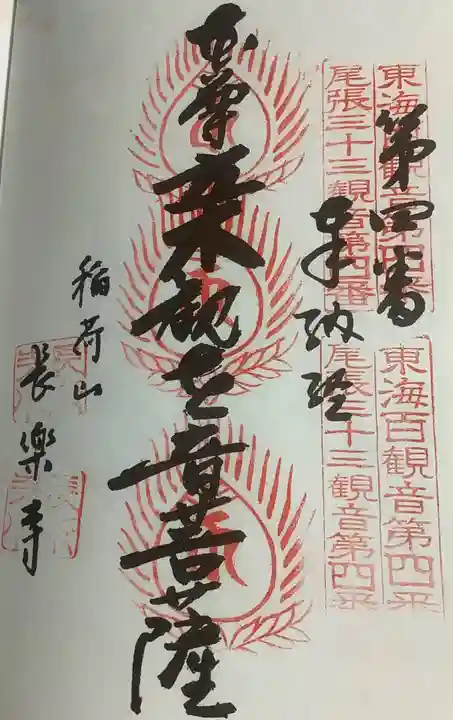 東海百観音第四番
尾張三十三観音第四番
東海百観音第四番
尾張三十三観音第四番
第四番
奉納経
本尊 観世音菩薩
稲荷山
長樂寺